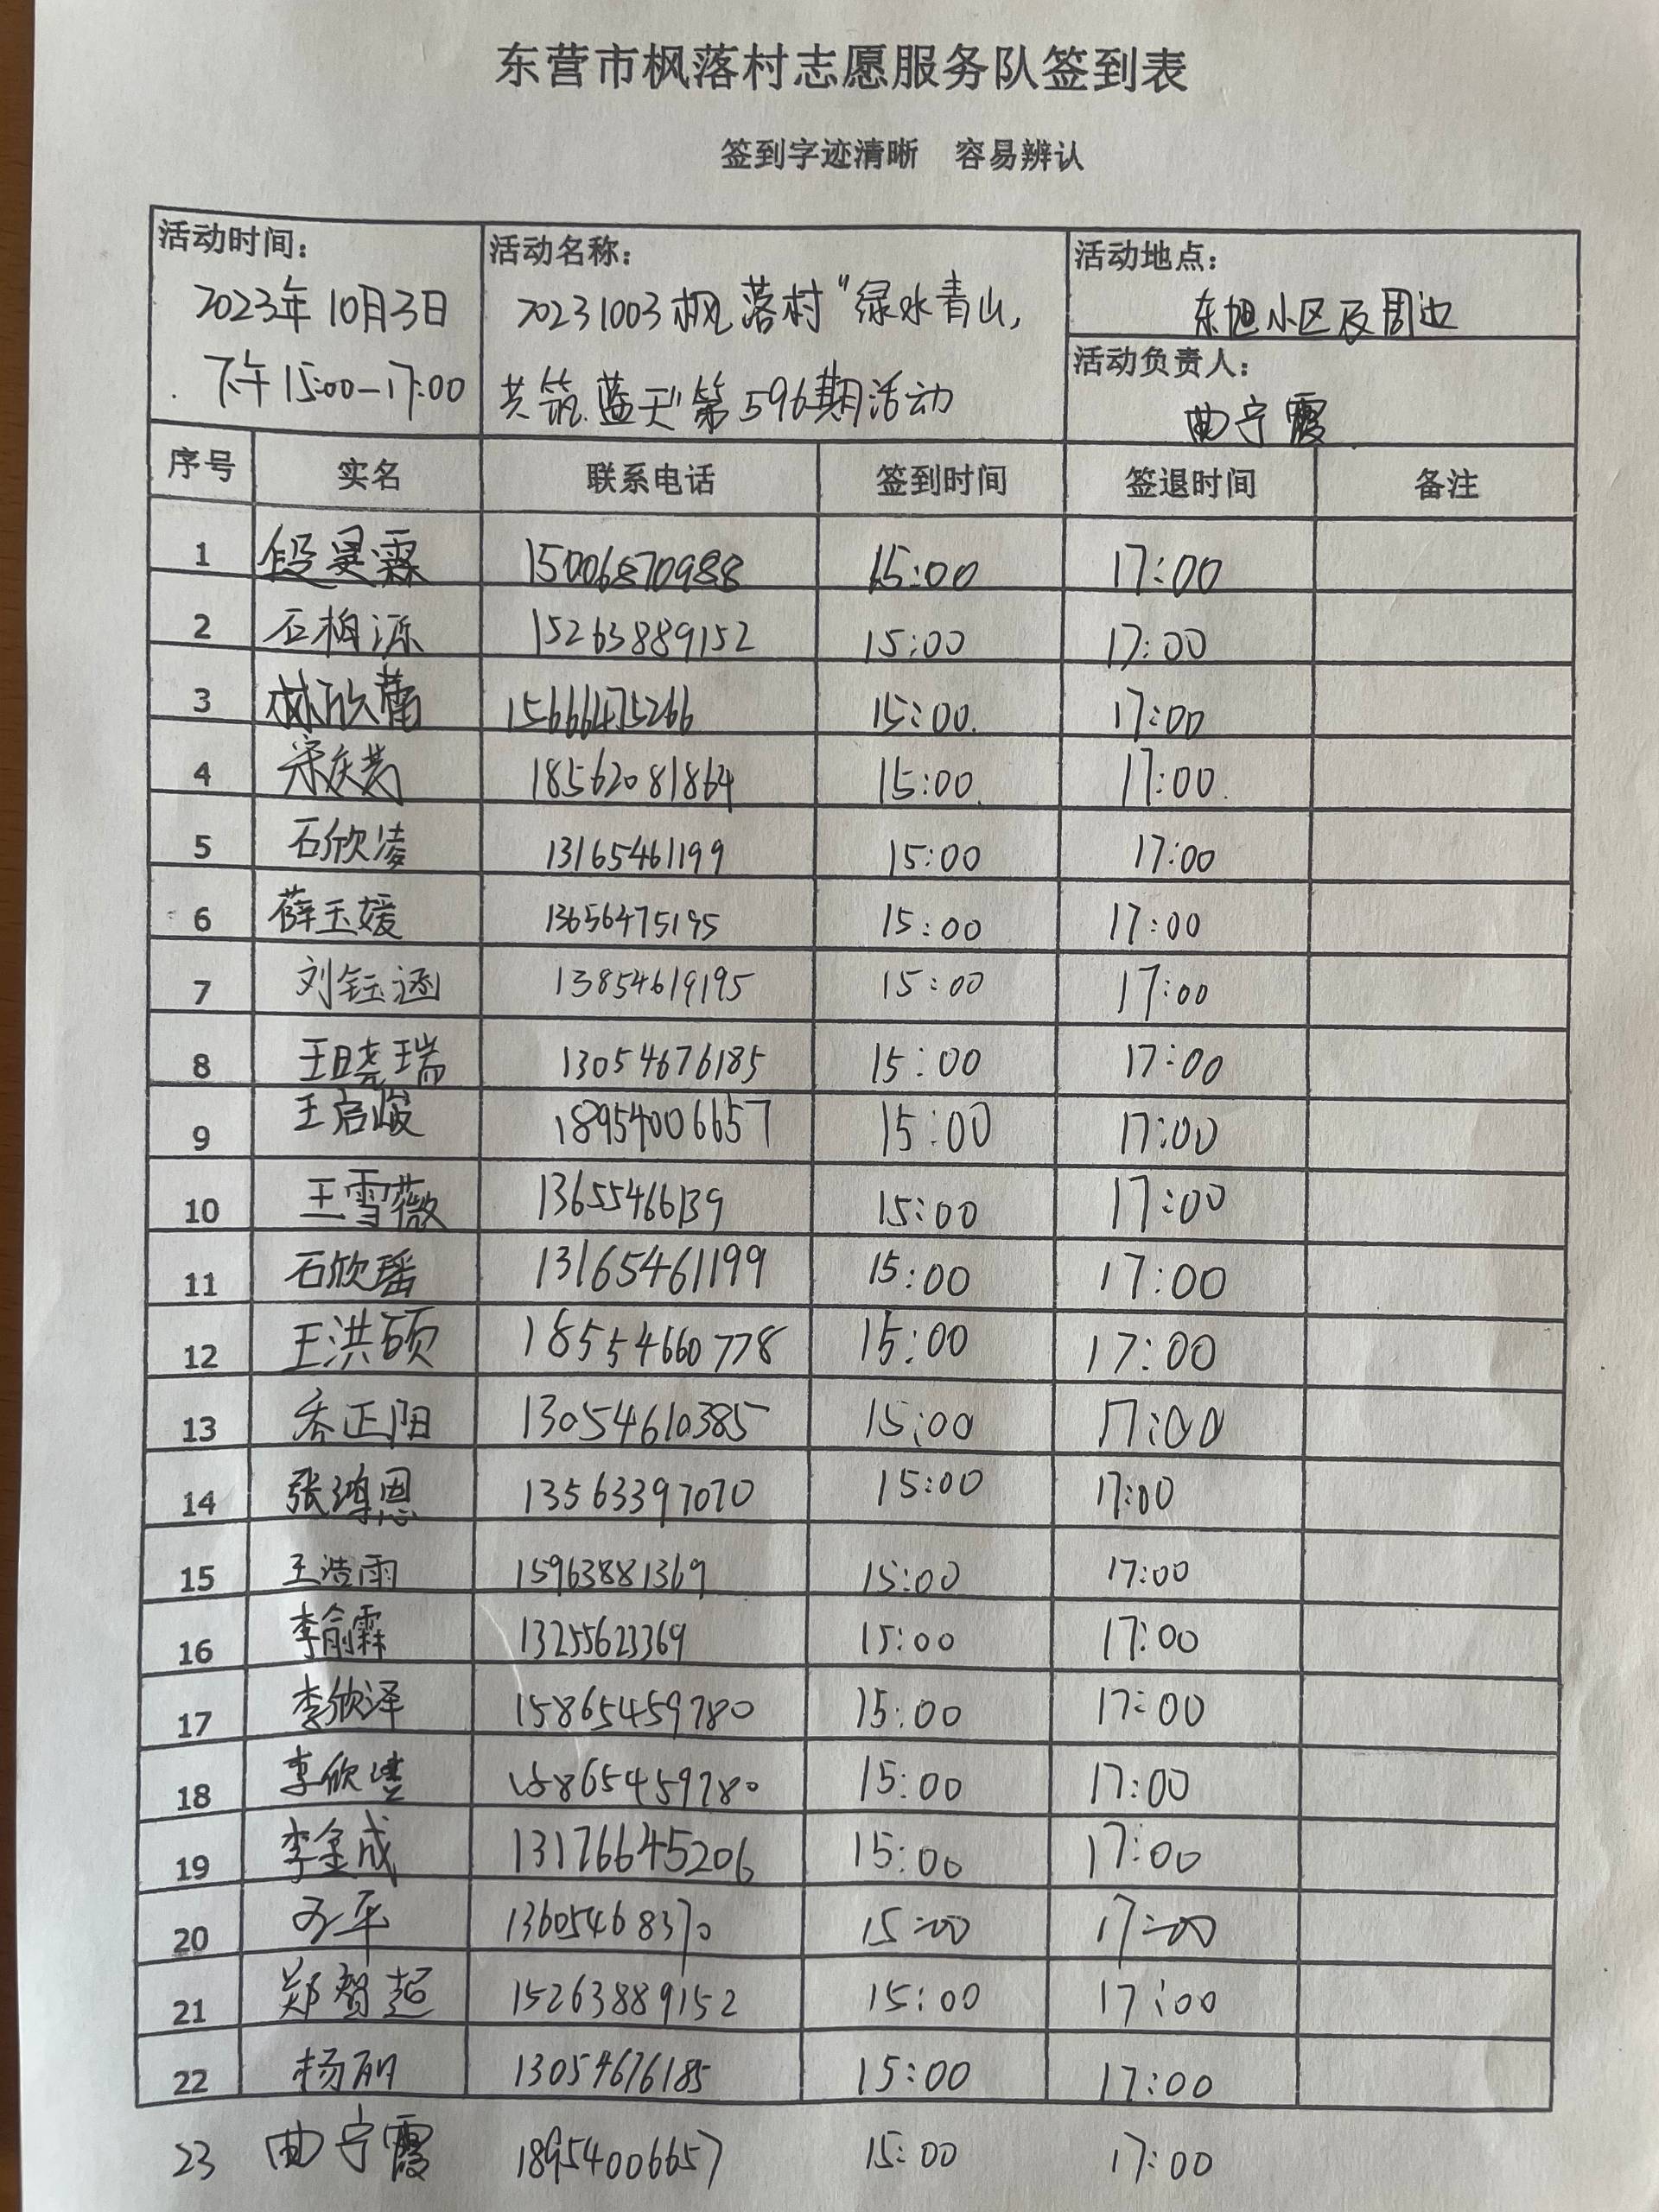 东营市枫落村志愿服务队签到表
签到字迹清晰 容易辨认
活动时间: 2023年10月3日 下午15:00-17:00
活动名称: 20231003枫落村"绿水青山,共筑蓝天"第596期活动
活动地点: 东旭小区及周边
活动负责人: 曲宁霞
序号 实名 联系电话 签到时间 签退时间 备注
1 段昊霖 15006870988 15:00 17:00
2 石桓源 15263889152 15:00 17:00
3 林欣蕾 15666475266 15:00 17:00
4 宋庆芳 18562081864 15:00 17:00
5 石欣凌 13165461199 15:00 17:00
6 薛玉媛 13656475195 15:00 17:00
7 刘钰涵 13854619195 15:00 17:00
8 王晓瑞 13054676185 15:00 17:00
9 王启峻 18954006657 15:00 17:00
10 王雪薇 13655466139 15:00 17:00
11 石欣瑶 13165461199 15:00 17:00
12 王洪硕 18554660778 15:00 17:00
13 乔正阳 13054610385 15:00 17:00
14 张鸿恩 13563397070 15:00 17:00
15 王浩雨 15963881369 15:00 17:00
16 李俞霖 13255623369 15:00 17:00
17 李欣泽 15865459780 15:00 17:00
18 李欣 15865459780 15:00 17:00
19 李金成 13176645206 15:00 17:00
20 平 13605468370 15:00 17:00
21 郑智超 15263889152 15:00 17:00
22 杨丽 13054676185 15:00 17:00
23 曲宁霞 18954006657 15:00 17:00